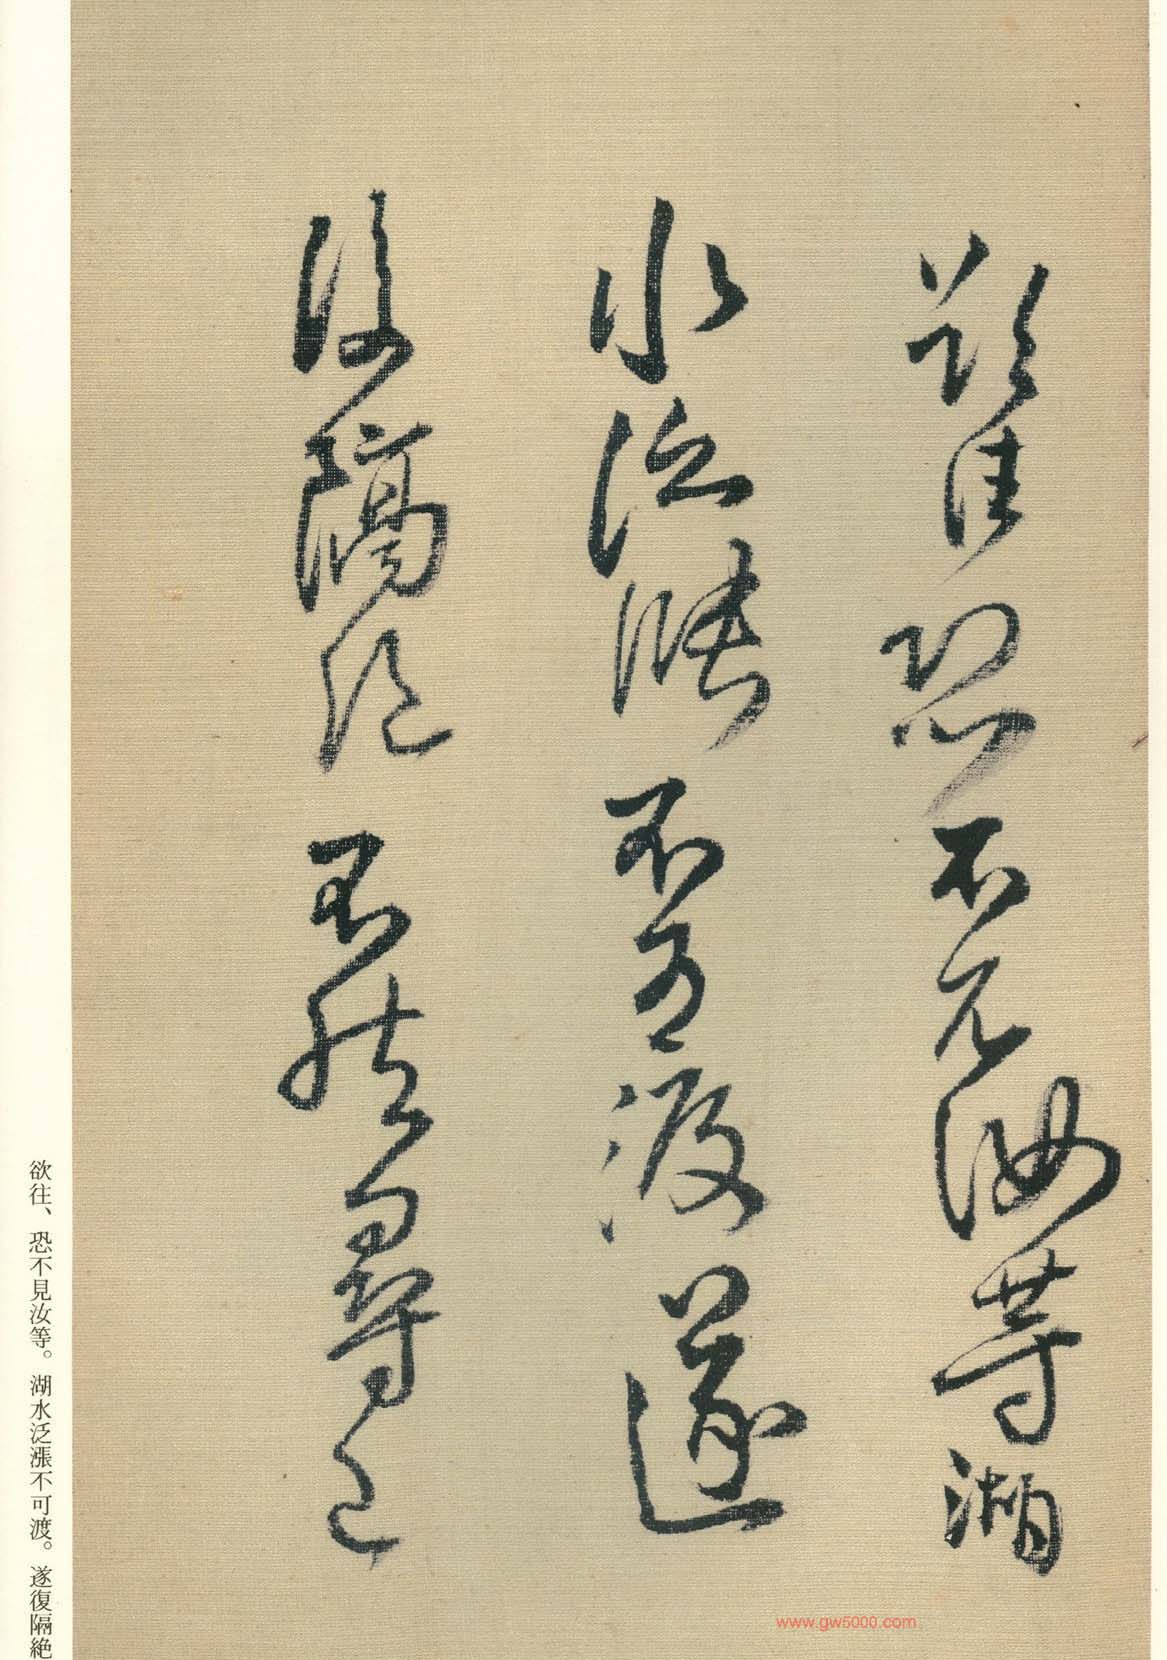 欲往恐不見汝等湖
水泛漲不可渡遂
復隔絕不能尋之
欲往、恐不見汝等。湖水泛漲不可渡。遂復隔絶
www.gw5000.com